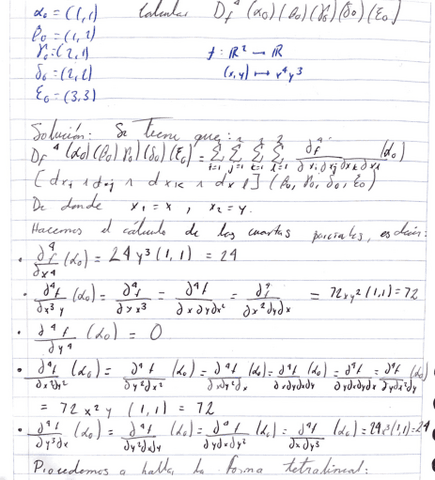 α₀ = (1,1) Calcular D_f⁴ (α₀)(β₀)(γ₀)(δ₀)(ε₀)
β₀ = (1,2)
γ₀ = (2,1) f: ℝ² → ℝ
δ₀ = (2,2) (x,y) ↦ x⁴y³
ε₀ = (3,3)
Solución: Se tiene que:
D_f⁴ (α₀)(β₀)(γ₀)(δ₀)(ε₀) = Σ_{i=1}^2 Σ_{j=1}^2 Σ_{k=1}^2 Σ_{l=1}^2 ∂⁴f/∂xi ∂xj ∂xk ∂xl (α₀)
[dxi ∧ dxj ∧ dxk ∧ dxl] (β₀, γ₀, δ₀, ε₀)
De donde x₁ = x, x₂ = y.
Hacemos el cálculo de las cuartas parciales, es decir:
• ∂⁴f/∂x⁴ (α₀) = 24y³(1,1) = 24
• ∂⁴f/∂x³y (α₀) = ∂⁴f/∂yx³ = ∂⁴f/∂x∂y∂x² = ∂⁴f/∂x²∂y∂x = 72xy²(1,1) = 72
• ∂⁴f/∂y⁴ (α₀) = 0
• ∂⁴f/∂x²y² (α₀) = ∂⁴f/∂y²∂x² (α₀) = ∂⁴f/∂x∂y²∂x (α₀) = ∂⁴f/∂x∂y∂x∂y (α₀) = ∂⁴f/∂y∂x∂y∂x = ∂⁴f/∂y∂x²∂y (α₀)
= 72x²y (1,1) = 72
• ∂⁴f/∂y³∂x (α₀) = ∂⁴f/∂y²∂x∂y (α₀) = ∂⁴f/∂y∂x∂y² (α₀) = ∂⁴f/∂x∂y³ (α₀) = 24x³(1,1) = 24
Procedemos a hallar la forma tetralineal: